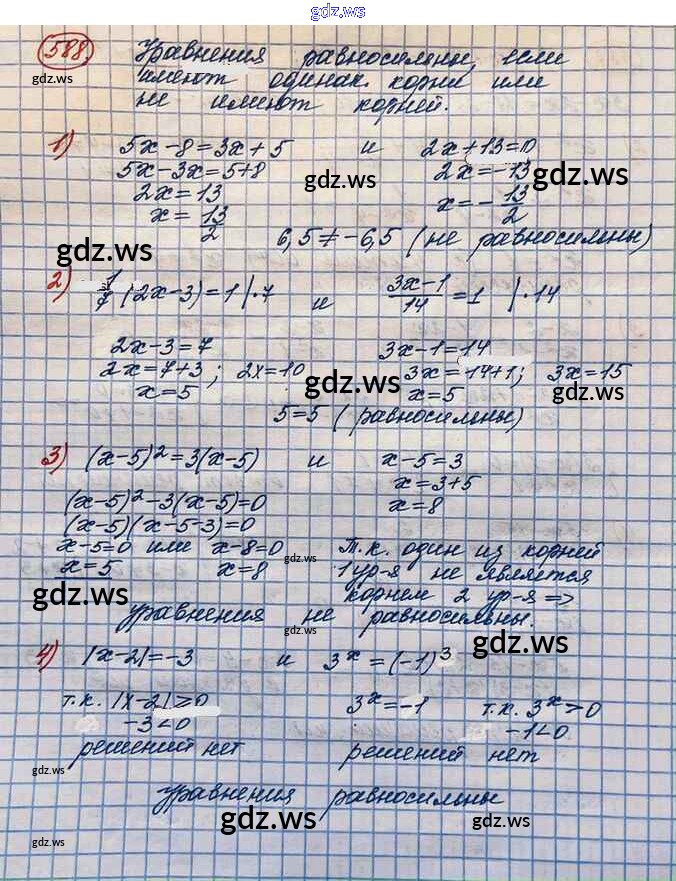 gdz.ws
588. Уравнения равносильны, если
имеют одинак. корни или
не имеют корней.
1) 5x-8=3x+5 и 2x+13=0
5x-3x=5+8 2x=-13
2x=13 x=-13/2
x=13/2
6,5≠-6,5 (не равносильны)
2) 1/7 (2x-3)=1 |·7 и (3x-1)/14=1 |·14
2x-3=7 3x-1=14
2x=7+3; 2x=10 3x=14+1; 3x=15
x=5 x=5
5=5 (равносильны)
3) (x-5)²=3(x-5) и x-5=3
(x-5)²-3(x-5)=0 x=3+5
(x-5)(x-5-3)=0 x=8
x-5=0 или x-8=0 Т.к. один из корней
x=5 x=8 1 ур-я не является
корнем 2 ур-я =>
уравнения не равносильны.
4) |x-2|=-3 и 3ˣ=(-1)³
т.к. |x-2|≥0 3ˣ=-1 т.к. 3ˣ>0
-3<0 -1<0
решений нет решений нет
Уравнения равносильны
gdz.ws
gdz.ws
gdz.ws
gdz.ws
gdz.ws
gdz.ws
gdz.ws
gdz.ws
gdz.ws
gdz.ws
gdz.ws
gdz.ws
gdz.ws
gdz.ws